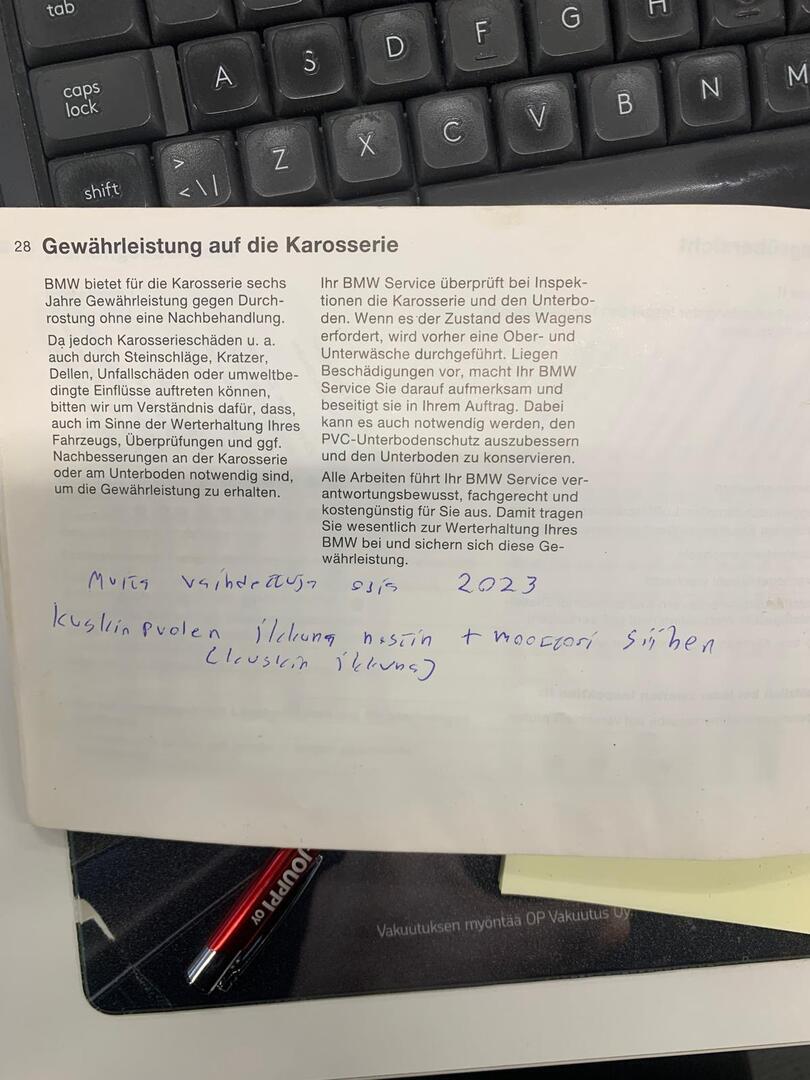 tab
A S D F G H
caps
lock
Z X C V B N M
shift
>
< \ |
28 Gewährleistung auf die Karosserie
BMW bietet für die Karosserie sechs
Jahre Gewährleistung gegen Durch-
rostung ohne eine Nachbehandlung.
Da jedoch Karosserieschäden u. a.
auch durch Steinschläge, Kratzer,
Dellen, Unfallschäden oder umweltbe-
dingte Einflüsse auftreten können,
bitten wir um Verständnis dafür, dass,
auch im Sinne der Werterhaltung Ihres
Fahrzeugs, Überprüfungen und ggf.
Nachbesserungen an der Karosserie
oder am Unterboden notwendig sind,
um die Gewährleistung zu erhalten.
Ihr BMW Service überprüft bei Inspek-
tionen die Karosserie und den Unterbo-
den. Wenn es der Zustand des Wagens
erfordert, wird vorher eine Ober- und
Unterwäsche durchgeführt. Liegen
Beschädigungen vor, macht Ihr BMW
Service Sie darauf aufmerksam und
beseitigt sie in Ihrem Auftrag. Dabei
kann es auch notwendig werden, den
PVC-Unterbodenschutz auszubessern
und den Unterboden zu konservieren.
Alle Arbeiten führt Ihr BMW Service ver-
antwortungsbewusst, fachgerecht und
kostengünstig für Sie aus. Damit tragen
Sie wesentlich zur Werterhaltung Ihres
BMW bei und sichern sich diese Ge-
währleistung.
Muita vaihdettuja osia 2023
kuskin puolen ikkuna nostin + moottori siihen
(kuskin ikkuna)
JOUPPI OY
Vakuutuksen myöntää OP Vakuutus Oy.